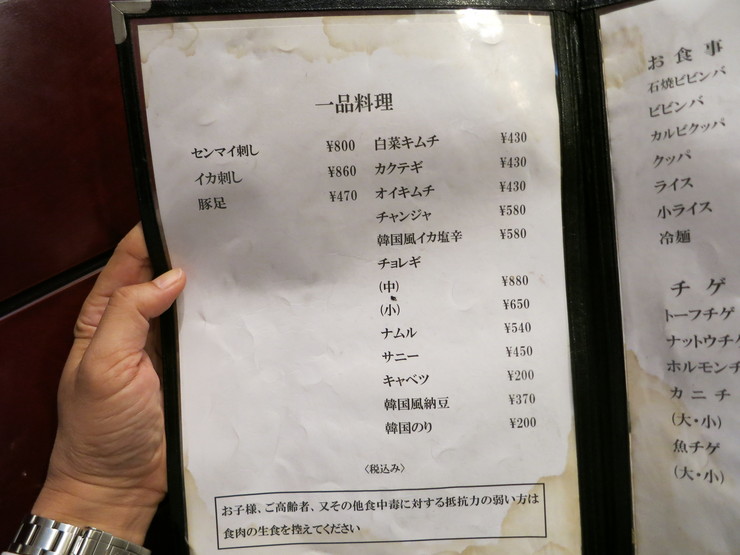 一品料理
センマイ刺し ¥800
イカ刺し ¥860
豚足 ¥470
白菜キムチ ¥430
カクテギ ¥430
オイキムチ ¥430
チャンジャ ¥580
韓国風イカ塩辛 ¥580
チョレギ
(中) ¥880
(小) ¥650
ナムル ¥540
サニー ¥450
キャベツ ¥200
韓国風納豆 ¥370
韓国のり ¥200
〈税込み〉
お子様、ご高齢者、又その他食中毒に対する抵抗力の弱い方は
食肉の生食を控えてください
お食事
石焼ビビンバ
ビビンバ
カルビクッパ
クッパ
ライス
小ライス
冷麺
チゲ
トーフチゲ
ナットウチゲ
ホルモンチ
カニチ
(大・小)
魚チゲ
(大・小)